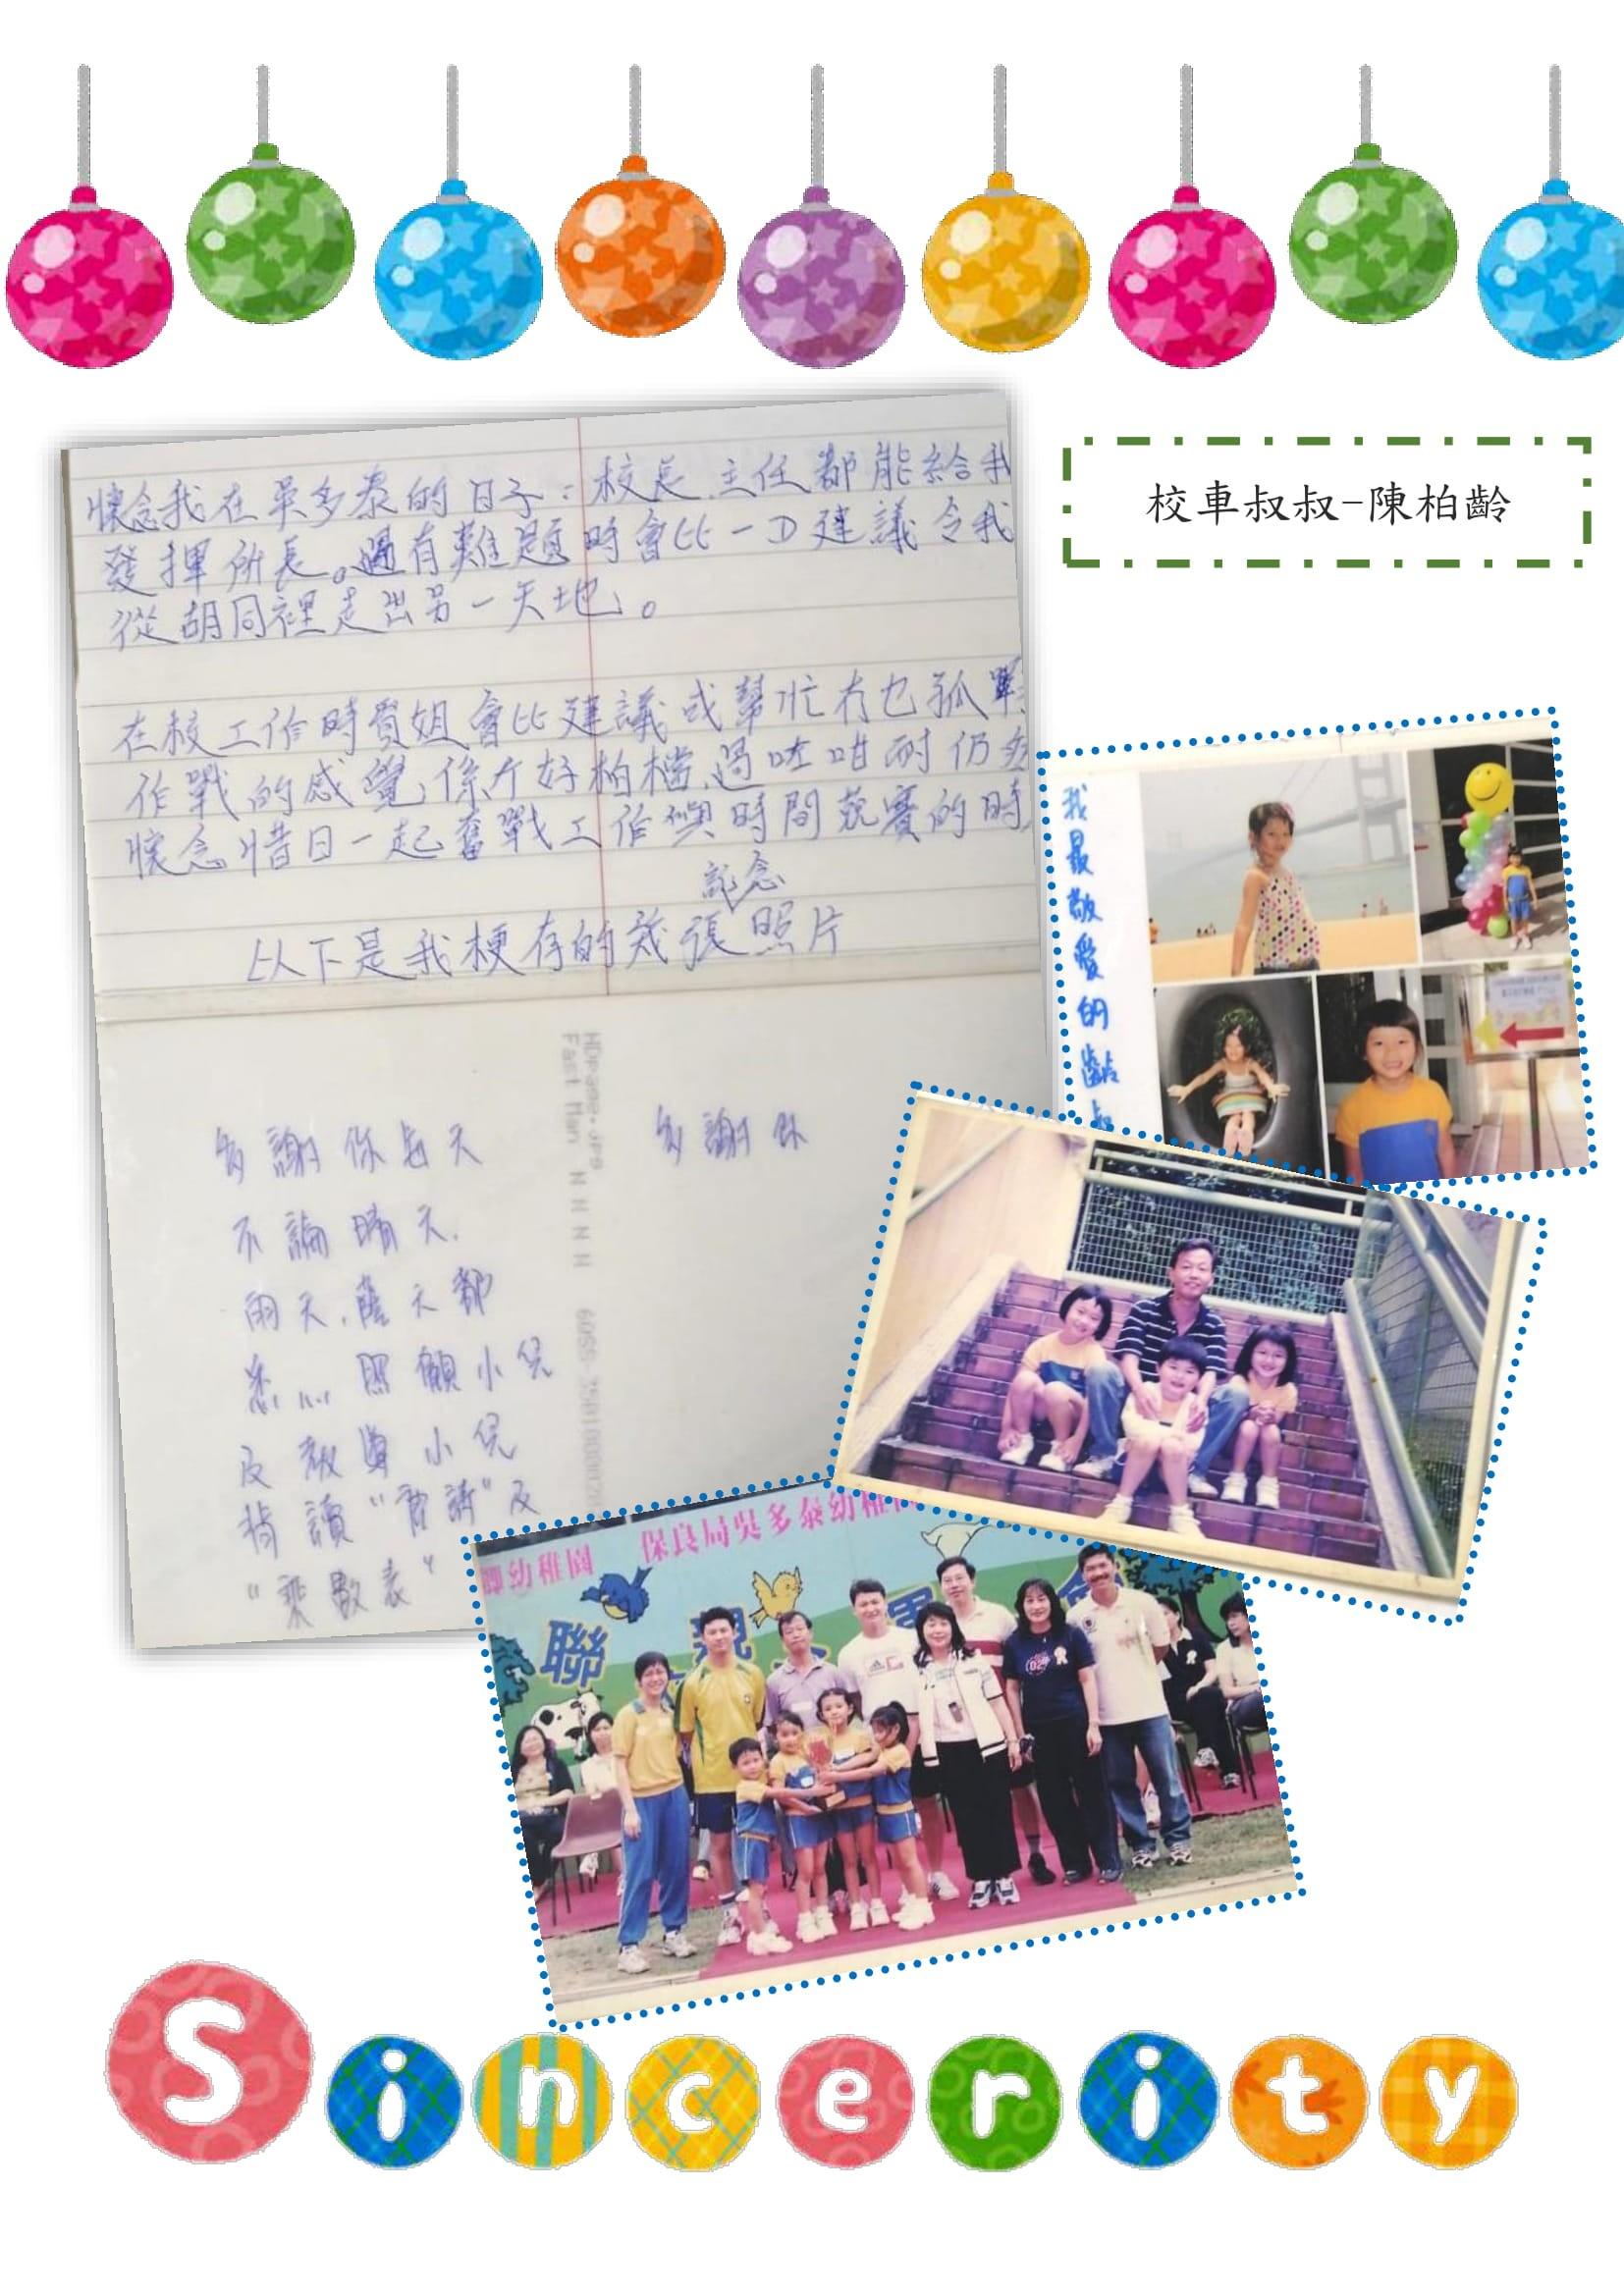 校車叔叔-陳柏齡
懷念我在吳多泰的日子:校長、主任都能給我
發揮所長。遇有難題時會比一D建議令我
從胡同裡走出另一天地。
在校工作時賢姐會比建議或幫忙冇乜孤單
作戰的感覺,係个好柏檔,過咗咁耐仍
懷念惜日一起奮戰工作與時間競賽的時
記念
以下是我梗存的幾張照片
多謝你每天
不論晴天,
雨天,陰天都
悉心照顧小兒
及教導小兒
背讀"唐詩"及
"乘數表"
多謝你
HDPage.JPG
Fast Man N N N N
我最敬愛的齡叔
保良局吳多泰幼稚園
幼稚園
聯
親
Sincerity